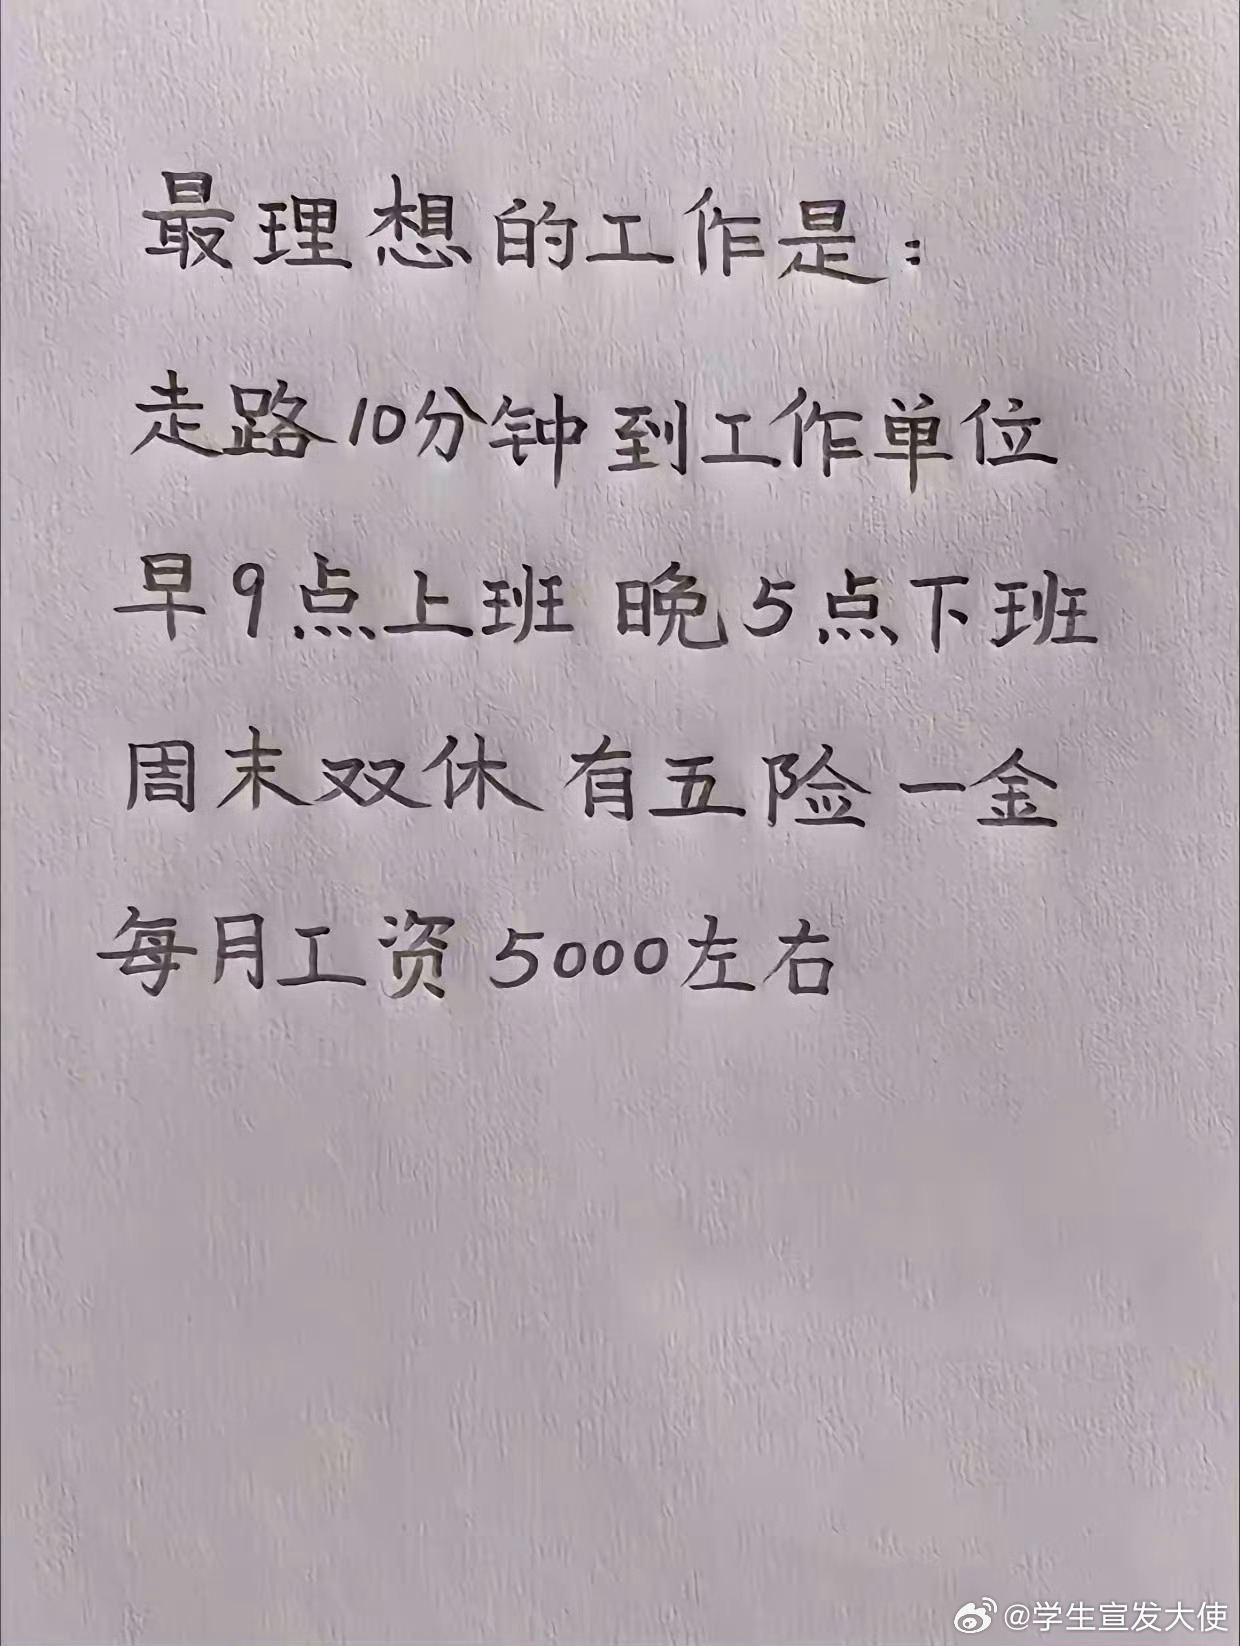 最理想的工作是：
走路10分钟到工作单位
早9点上班 晚5点下班
周末双休 有五险一金
每月工资5000左右
@学生宣发大使